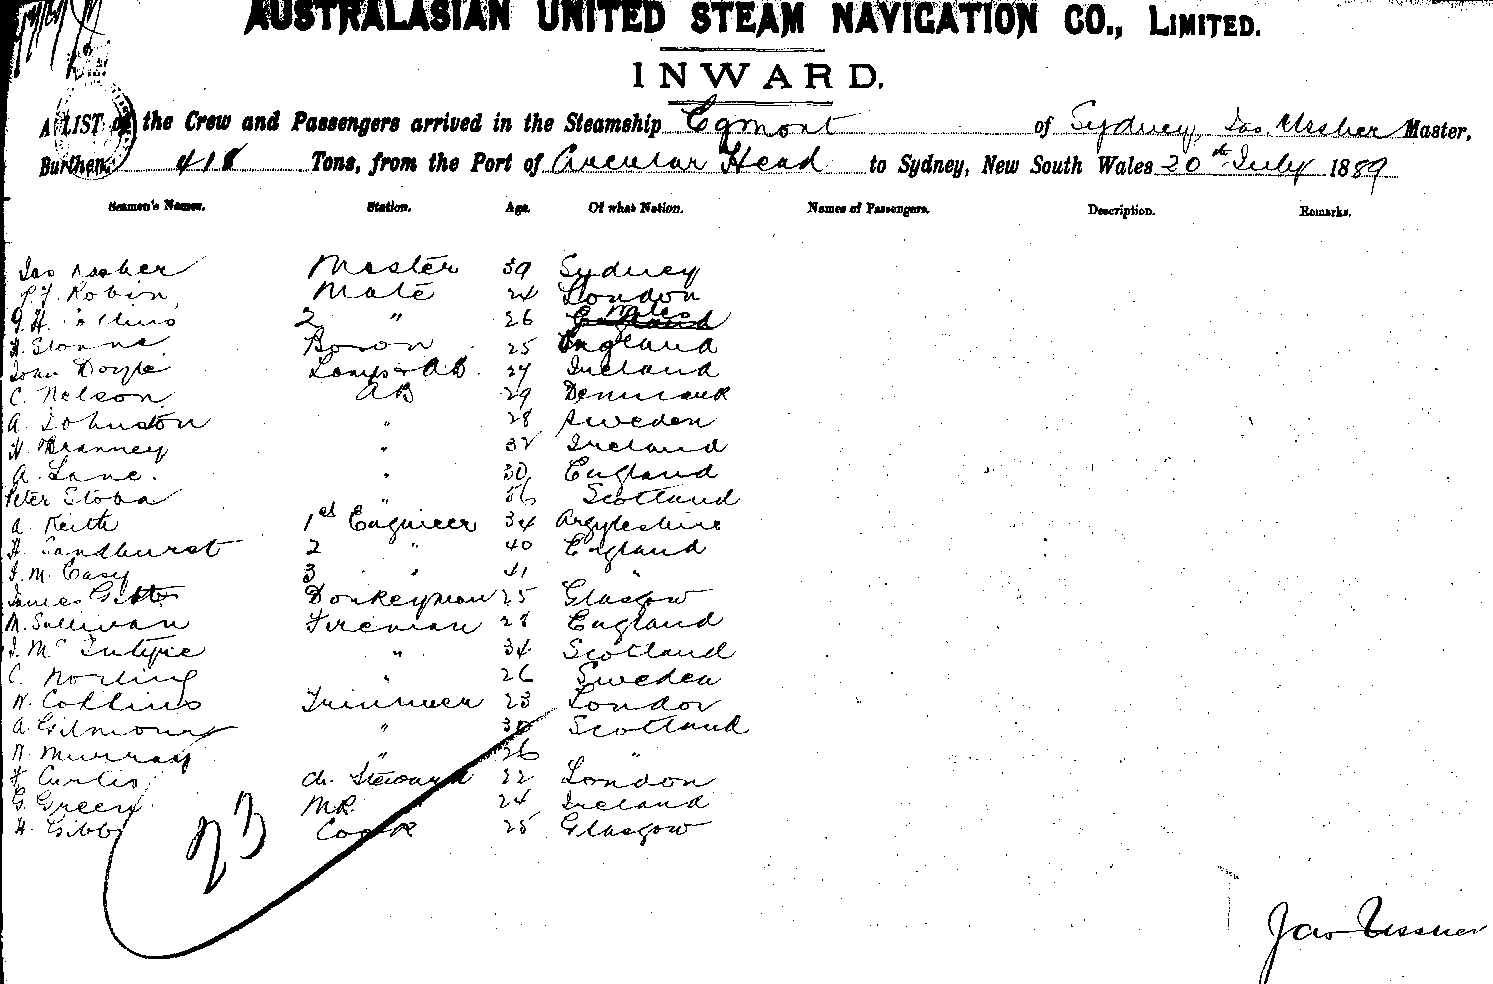 AUSTRALASIAN UNITED STEAM NAVIGATION CO., LIMITED.
INWARD.
A LIST of the Crew and Passengers arrived in the Steamship Egmont of Sydney, Jas. Ussher Master,
Burthen, 418 Tons, from the Port of Circular Head to Sydney, New South Wales 20th July 1889
Seamen's Names. Station. Age. Of what Nation. Names of Passengers. Description. Remarks.
Jas Ussher Master 39 Sydney
Robin Mate 24 London
2 " 26 Wales
Boson 25 England
John Doyle Lamps & AB. 27 Ireland
C. Nelson AB 29 Denmark
A Johnston " 28 Sweden
" 32 Ireland
A. Lane. " 30 England
Peter " Scotland
A. Keith 1st Engineer 34 Argyleshire
H. Sandhurst 2 " 40 England
J. M. Casey 3 " 41 "
James Donkeyman 25 Glasgow
M. Sullivan Fireman 28 England
J. Mc " 34 Scotland
C. Norling " 26 Sweden
W. Collins Trimmer 23 London
A. Gilmour " Scotland
Murray " 26 "
F Curtis Ch. Steward 22 London
G. Green MR. " 24 Ireland
H. Gibb Cook 25 Glasgow
23
Jas Ussher